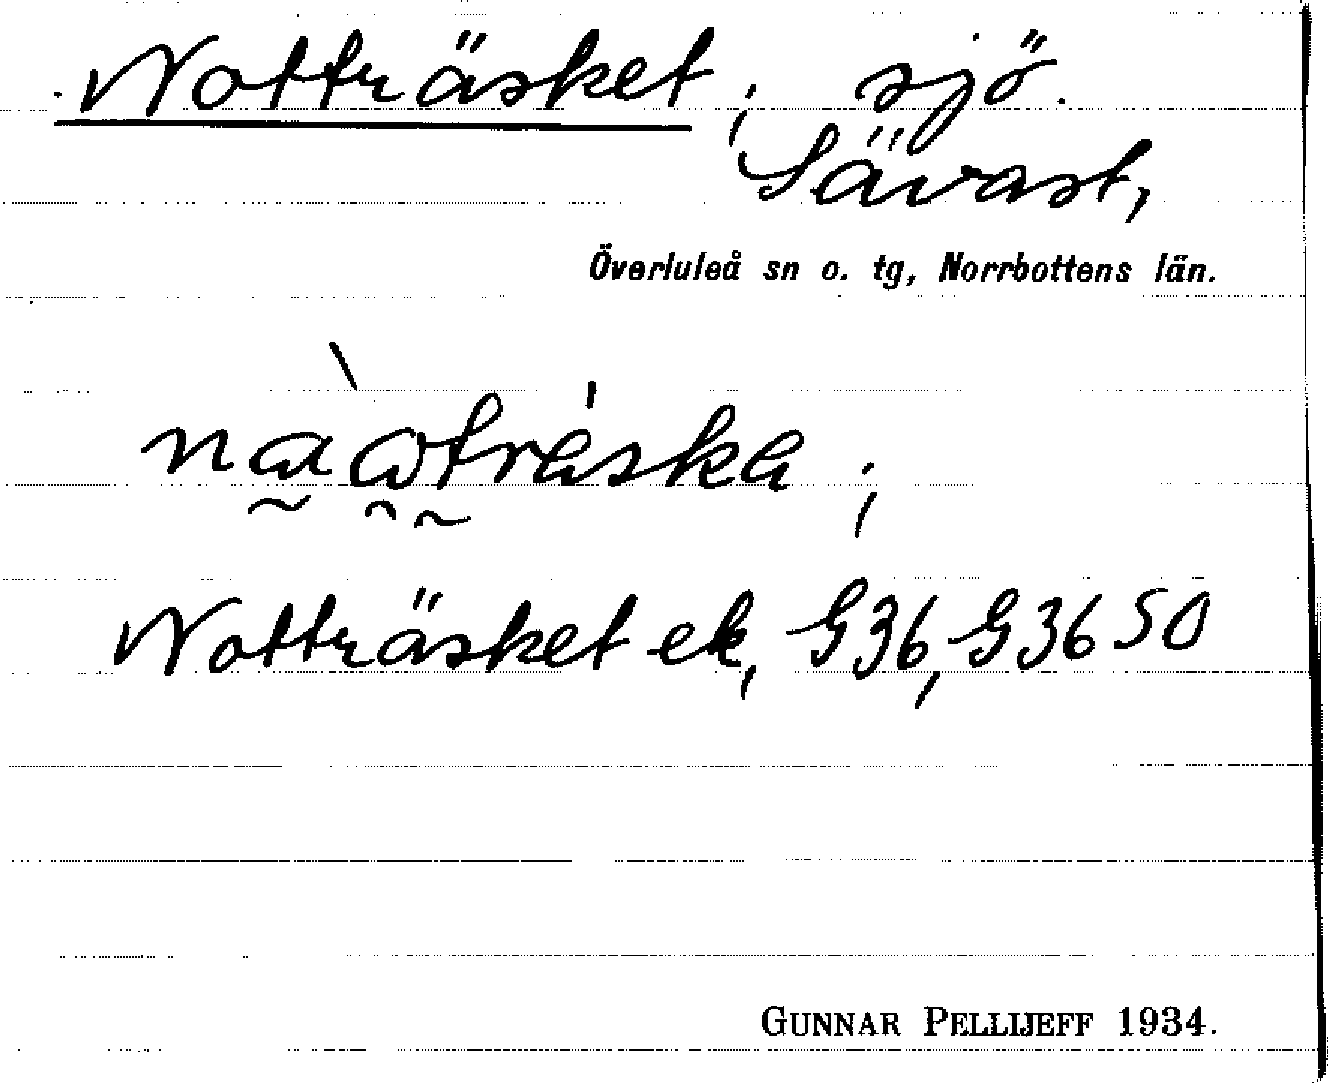 Notträsket, sjö.
Sävast,
Överluleå sn o. tg, Norrbottens län.
Notträsket ek, G36, G36 SO
GUNNAR PELLIJEFF 1934.